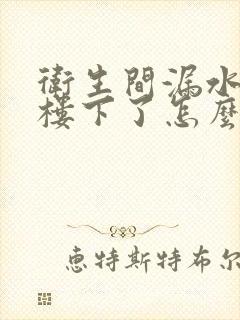 衛生間漏水
樓下了怎麼
惠特斯特布尔